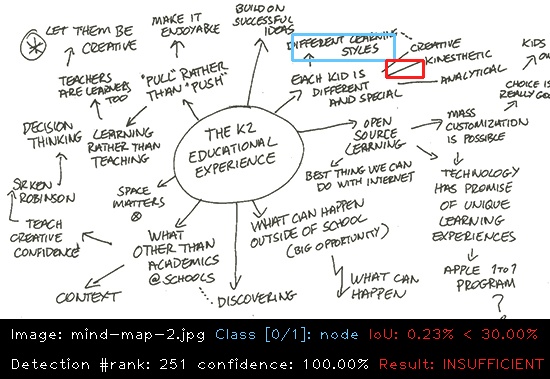 LET THEM BE
CREATIVE
MAKE IT
ENJOYABLE
BUILD ON
SUCCESSFUL
IDEAS
DIFFERENT LEARNING
STYLES
CREATIVE
KINESTHETIC
ANALYTICAL
KIDS
CHOICE IS
REALLY
TEACHERS
ARE LEARNERS
TOO
"PULL" RATHER
THAN "PUSH"
EACH KID IS
DIFFERENT
AND SPECIAL
DECISION
THINKING
LEARNING
RATHER THAN
TEACHING
THE K12
EDUCATIONAL
EXPERIENCE
OPEN
SOURCE
LEARNING
MASS
CUSTOMIZATION
IS POSSIBLE
BEST THING WE CAN
DO WITH INTERNET
SIR KEN
ROBINSON
SPACE
MATTERS
TECHNOLOGY
HAS PROMISE
OF UNIQUE
LEARNING
EXPERIENCES
TEACH
CREATIVE
CONFIDENCE
WHAT
OTHER THAN
ACADEMICS
@ SCHOOLS
WHAT CAN HAPPEN
OUTSIDE OF SCHOOL
(BIG OPPORTUNITY)
APPLE 1 TO 1
PROGRAM
?
CONTEXT
DISCOVERING
WHAT CAN
HAPPEN
Image: mind-map-2.jpg Class [0/1]: node IoU: 0.23% < 30.00%
Detection #rank: 251 confidence: 100.00% Result: INSUFFICIENT